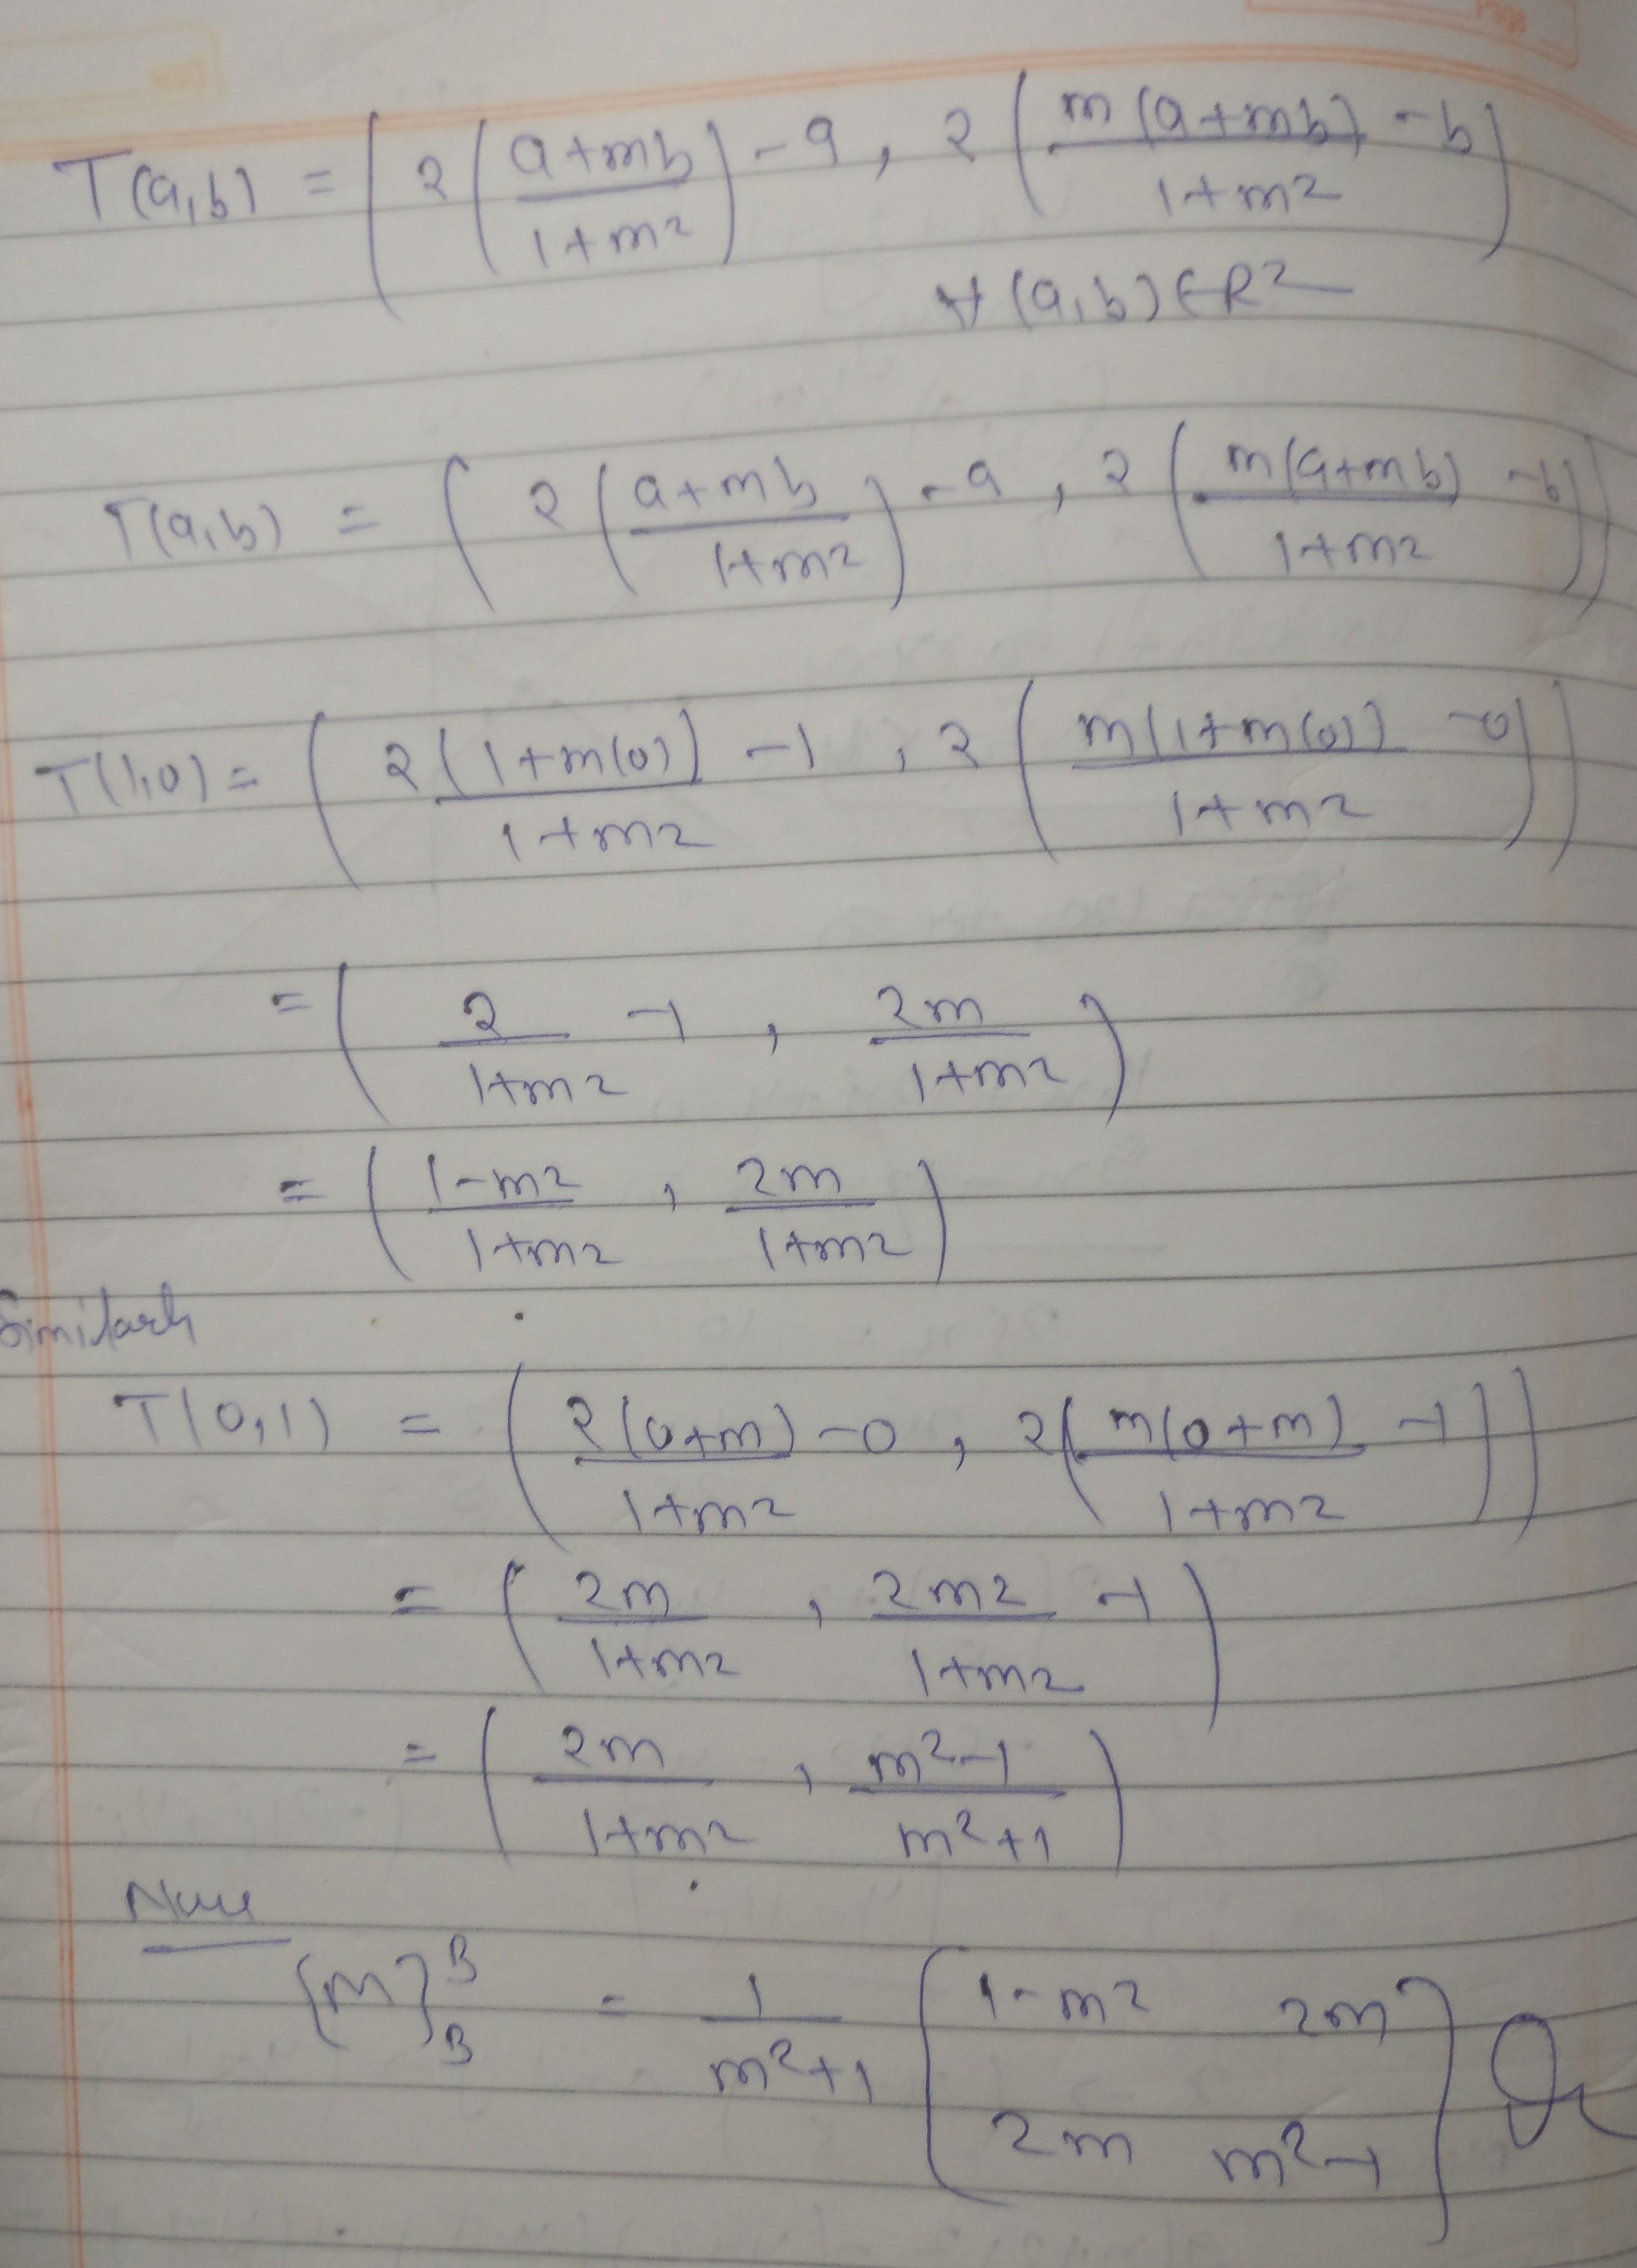 T(a,b) = ( 2 ( (a+mb)/(1+m2) ) - a , 2 ( (m(a+mb))/(1+m2) - b )
∀ (a,b) ∈ R2
T(a,b) = ( 2 ( (a+mb)/(1+m2) ) - a , 2 ( (m(a+mb))/(1+m2) - b ) )
T(1,0) = ( (2(1+m(0)))/(1+m2) - 1 , 2 ( (m(1+m(0)))/(1+m2) - 0 ) )
= ( 2/(1+m2) - 1 , 2m/(1+m2) )
= ( (1-m2)/(1+m2) , 2m/(1+m2) )
Similarly
T(0,1) = ( (2(0+m))/(1+m2) - 0 , 2( (m(0+m))/(1+m2) - 1 ) )
= ( 2m/(1+m2) , 2m2/(1+m2) - 1 )
= ( 2m/(1+m2) , (m2-1)/(m2+1) )
{m}B B = 1/(m2+1) [ 1-m2 2m
2m m2-1 ]